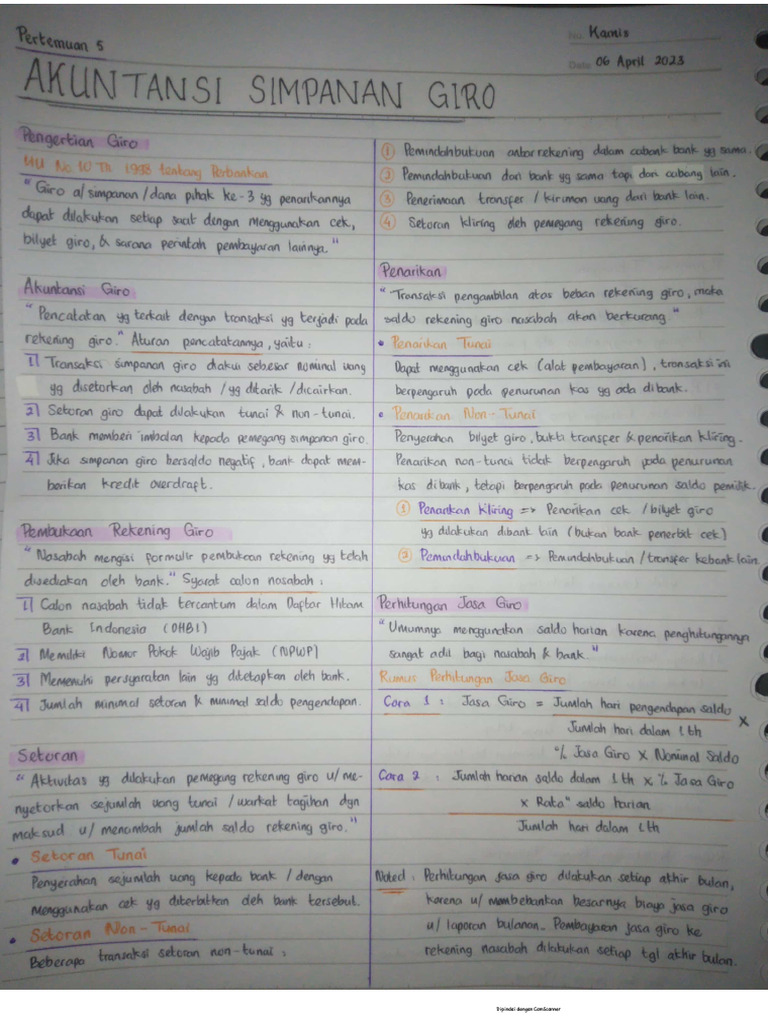 Pertemuan 5
No. Kamis
Date 06 April 2023
AKUNTANSI SIMPANAN GIRO
Pengertian Giro
UU No 10 Th 1998 tentang Perbankan
"Giro a/ simpanan / dana pihak ke-3 yg penarikannya
dapat dilakukan setiap saat dengan menggunakan cek,
bilyet giro, & sarana perintah pembayaran lainnya."
Akuntansi Giro
"Pencatatan yg terkait dengan transaksi yg terjadi pada
rekening giro." Aturan pencatatannya, yaitu :
1 Transaksi simpanan giro diakui sebesar nominal uang
yg disetorkan oleh nasabah / yg ditarik / dicairkan.
2 Setoran giro dapat dilakukan tunai & non-tunai.
3 Bank memberi imbalan kepada pemegang simpanan giro.
4 Jika simpanan giro bersaldo negatif, bank dapat mem-
berikan kredit overdraft.
Pembukaan Rekening Giro
"Nasabah mengisi formulir pembukaan rekening yg telah
disediakan oleh bank." Syarat calon nasabah :
1 Calon nasabah tidak tercantum dalam Daftar Hitam
Bank Indonesia (DHBI)
2 Memiliki Nomor Pokok Wajib Pajak (NPWP)
3 Memenuhi persyaratan lain yg ditetapkan oleh bank.
4 Jumlah minimal setoran & minimal saldo pengendapan.
Setoran
"Aktivitas yg dilakukan pemegang rekening giro u/ me-
nyetorkan sejumlah uang tunai / warkat tagihan dgn
maksud u/ menambah jumlah saldo rekening giro."
• Setoran Tunai
Penyerahan sejumlah uang kepada bank / dengan
menggunakan cek yg diterbitkan oleh bank tersebut.
• Setoran Non-Tunai
Beberapa transaksi setoran non-tunai :
1 Pemindahbukuan antar rekening dalam cabank bank yg sama.
2 Pemindahbukuan dari bank yg sama tapi dari cabang lain.
3 Penerimaan transfer / kiriman uang dari bank lain.
4 Setoran kliring oleh pemegang rekening giro.
Penarikan
"Transaksi pengambilan atas beban rekening giro, maka
saldo rekening giro nasabah akan berkurang"
• Penarikan Tunai
Dapat menggunakan cek (alat pembayaran), transaksi ini
berpengaruh pada penurunan kas yg ada dibank.
• Penarikan Non-Tunai
Penyerahan bilyet giro, bukti transfer & penarikan kliring.
Penarikan non-tunai tidak berpengaruh pada penurunan
kas dibank, tetapi berpengaruh pada penurunan saldo pemilik.
1 Penarikan Kliring => Penarikan cek / bilyet giro
yg dilakukan dibank lain (bukan bank penerbit cek)
2 Pemindahbukuan => Pemindahbukuan / transfer kebank lain.
Perhitungan Jasa Giro
"Umumnya menggunakan saldo harian karena penghitungannya
sangat adil bagi nasabah & bank."
Rumus Perhitungan Jasa Giro
Cara 1 : Jasa Giro = Jumlah hari pengendapan saldo ×
Jumlah hari dalam 1 th
% Jasa Giro × Nominal Saldo
Cara 2 : Jumlah harian saldo dalam 1 th × % Jasa Giro
× Rata" saldo harian
Jumlah hari dalam 1 th
Noted : Perhitungan jasa giro dilakukan setiap akhir bulan,
karena u/ membebankan besarnya biaya jasa giro
u/ laporan bulanan. Pembayaran jasa giro ke
rekening nasabah dilakukan setiap tgl akhir bulan.
Dipindai dengan CamScanner